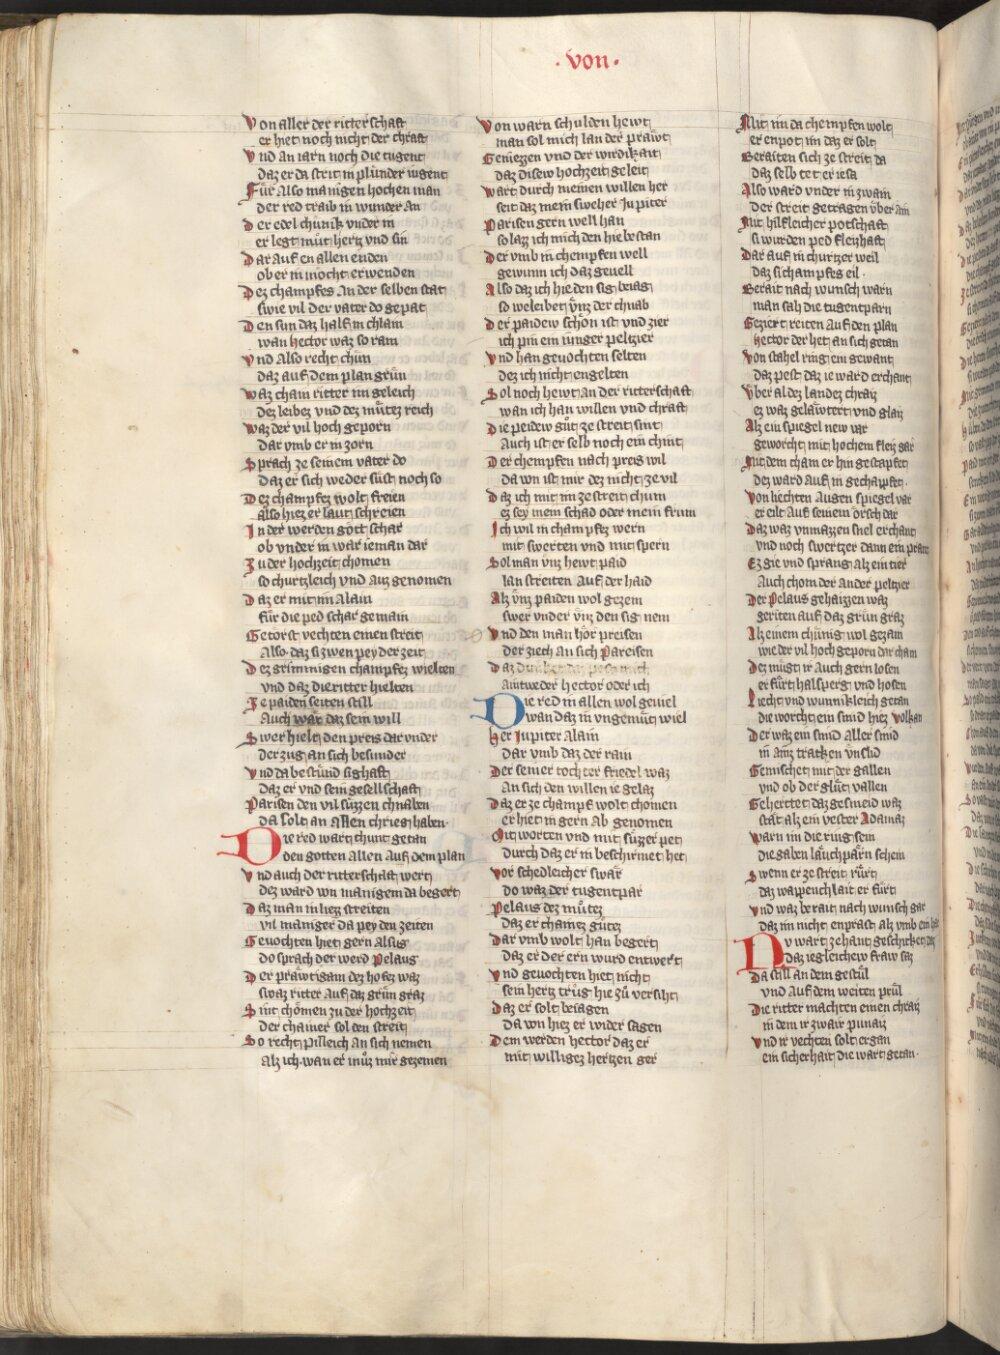 · von ·
Von aller der ritterschaft
er hiet noch nicht der chraft
Vnd an iarn noch die tugent
daz er da strit in plůnder iugent
Fůr also manigen hochen man
der red traib in wunder an
Der edel chůnik vnder in
er legt můt hertz vnd sin
Dar auf en allen enden
ob er in mocht erwenden
Dez champfes an der selben stat
swie vil der vater do gepat
Den sun daz half in chlain
wan hector waz so rain
Vnd also recht chůn
daz auf dem plan grůn
Waz cham ritter im geleich
dez leibez vnd dez můtez reich
Waz der vil hoch geporn
dar vmb er in zorn
Sprach ze seinem vater do
daz er sich weder sůst noch so
Dez champfez wolt freien
also hiez er laut schreien
In der werden gött schar
ob vnder in wär ieman dar
Zu der hochzeit chomen
so churtzleich vnd auz genomen
Daz er mit im alain
für die ped schar gemain
Getorst vechten einen streit
Also daz si zwen pey der zeit
Dez grimmigen champfez wielten
vnd daz die ritter hielten
Ze paiden seiten still
Auch wär daz sein will
Swer hielt den preis dar vnder
der zug an sich besunder
Vnd da bestůnd sighaft
daz er vnd sein gesellschaft
Parisen den vil sůzzen chnaben
da solt an allen chrieg haben·
Die red wart chunt getan
den gotten allen auf dem plan
Vnd auch der ritterschaft wert
dez ward von manigem da begert
Daz man in liez streiten
vil maniger da pey den zeiten
Geuochten hiet gern alsus
do sprach der werd Pelaus
Der präwtigam dez hofez waz
swaz ritter auf daz grün graz
Sint chömen zu der hochzeit
der chainer sol den streit
So recht pilleich an sich nemen
Alz ich wan er můz mir gezemen
Von warn schulden hewt
man sol mich lan der präwt
Geniezzen vnd der wirdikait
daz disew hochzeit geleit
Wart durch meinen willen her
seit daz mein sweher Jupiter
Parisen gern well han
so laz ich mich den hie bestan
Der vmb in chempfen well
gewinn ich daz geuell
Also daz ich hie den sig beiag
so weleibet vnz der chnab
Der paidew schön ist vnd zier
ich pin ein iunger peltzier
Vnd han geuochten selten
dez ich nicht engelten
Sol noch hewt an der ritterschaft
wan ich han willen vnd chraft
Die peidew gůt ze streit sint
Auch ist er selb noch ein chint
Der chempfen nach preis wil
da von ist mir dez nicht ze vil
Daz ich mit im ze streit chum
ez sey mein schad oder mein frum
Ich wil in champfez wern
mit swerten vnd mit spern
Sol man vnz hewt paid
lan streiten auf der haid
Alz vnz paiden wol gezem
swer vnder vnz den sig nem
Vnd den man hör preisen
der ziech an sich Pareisen
Daz
Aintweder hector oder ich
Die red in allen wol geuiel
wan daz in vngemůt wiel
Her Jupiter alain
dar vmb daz der rain
Der seiner tochter friedel waz
An sich den willen ie gelaz
Daz er ze champf wolt chomen
er hiet in gern ab genomen
Mit worten vnd mit sůzzer pet
durch daz er in beschirmet het
Vor schedleicher swär
do waz der tugentpär
Pelaus dez můtez
daz er chainez gůtez
Dar vmb wolt han begert
daz er der ern wurd entwert
Vnd geuochten hiet nicht
sein hertz trůg hie zů versiht
Daz er solt beiagen
da von hiez er wider sagen
Dem werden hector daz er
mit willigez hertzen ger
Mit im da chempfen wolt
er enpot im daz er solt
Beraiten sich ze streit da
daz selb tet er iesa
Also ward vnder in zwain
der streit getragen vber ain
Mit hilfleicher potschaft
si wurden ped fleizhaft
Dar auf in churtzer weil
daz si champfes eil·
Berait nach wunsch warn
man sah die tugentparn
Geziert reiten auf den plan
hector der het an sich getan
Von stahel ring ein gewant
daz pest daz ie ward erchant
Vber al dez landez chraiz
ez waz gelawtert vnd glaiz
Alz ein spiegel new var
geworcht mit hochem fleiz gar
Mit dem cham er hin gestapfet
dez ward auf in gechapfet·
Von liechten augen spiegel var
er eilt auf seinem örsch dar
Daz waz vnmazzen snel erchant
vnd noch swertzer dann ein prant
Ez gie vnd sprang alz ein tier
Auch chom der ander peltzier
Der Pelaus gehaizzen waz
geriten auf daz grün graz
Alz einem chünig wol gezam
wie der vil hoch geporn dar cham
Dez mügt ir auch gern losen
er fůrt halsperg vnd hosen
Liecht vnd wunnikleich getan
die worcht ein smid hiez Volkan
Der waz ein smid aller smid
in ainz tracken vn slid
Gemischet mit der gallen
vnd ob der glůt vallen
Gehertet daz gesmeid waz
stät alz ein vester Adamaz
Warn im die ring sein
die gaben lauchparn schein
Swenn er ze streit růrt
daz wappenchlait er fůrt
Vnd waz berait nach wunsch gar
daz im nicht enprast alz vmb ein har
Nv wart zehant geschicket daz
daz iegleichew fraw saz
Da still an dem gestůl
vnd auf dem weiten průl
Die ritter machten einen chraiz
in dem ir zwair punaiz
Vnd ir vechten solt ergan
ein sicherhait die wart getan·